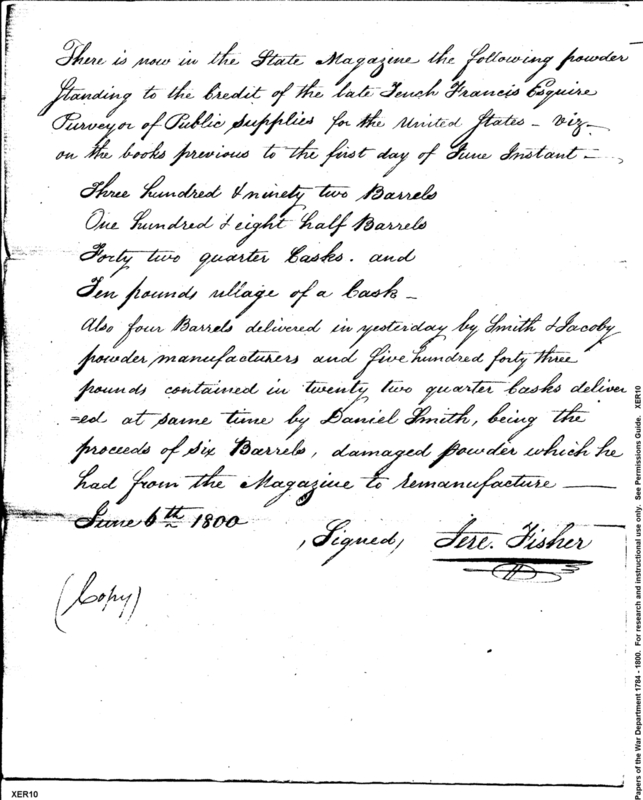 There is now in the State Magazine the following powder
Standing to the Credit of the late Tench Francis Esquire
Purveyor of Public Supplies for the United States - viz -
on the books previous to the first day of June Instant -
Three hundred & ninety two Barrels
One hundred & eight half Barrels
Forty two quarter Casks. and
Ten pounds ullage of a Cask -
Also four Barrels delivered in yesterday by Smith & Jacoby
powder manufacturers and five hundred forty three
pounds contained in twenty two quarter Casks deliver
=ed at same time by Daniel Smith, being the
proceeds of six Barrels, damaged powder which he
had from the Magazine to remanufacture —
June 6th 1800
, Signed, Jere. Fisher
(Copy)
XER10
Papers of the War Department 1784 - 1800. For research and instructional use only. See Permissions Guide. XER10